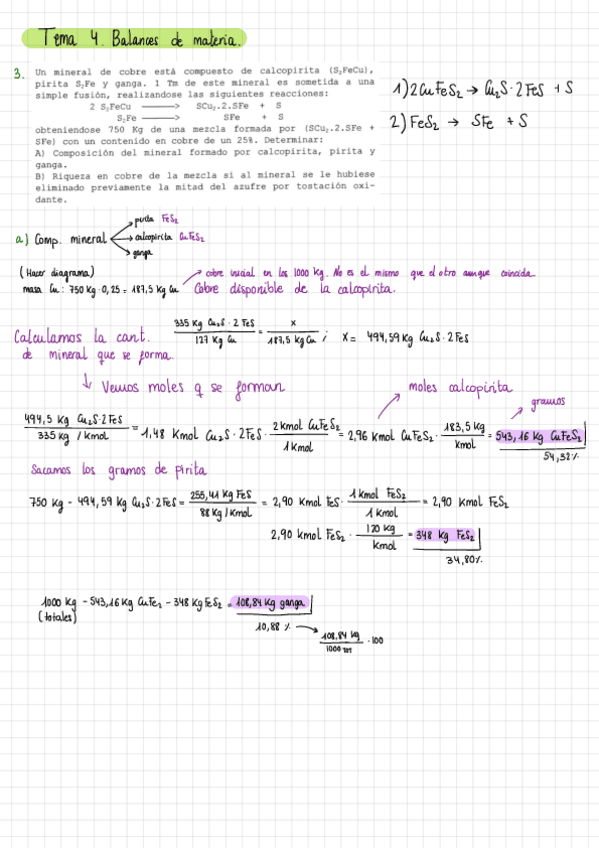 Tema 4. Balances de materia.
3. Un mineral de cobre está compuesto de calcopirita (S₂FeCu),
pirita S₂Fe y ganga. 1 Tm de este mineral es sometida a una
simple fusión, realizandose las siguientes reacciones:
2 S₂FeCu ———> SCu₂.2.SFe + S
S₂Fe ———> SFe + S
obteniendose 750 Kg de una mezcla formada por (SCu₂.2.SFe +
SFe) con un contenido en cobre de un 25%. Determinar:
A) Composición del mineral formado por calcopirita, pirita y
ganga.
B) Riqueza en cobre de la mezcla si al mineral se le hubiese
eliminado previamente la mitad del azufre por tostación oxi-
dante.
1) 2CuFeS₂ → Cu₂S · 2FeS + S
2) FeS₂ → SFe + S
a) Comp. mineral
pirita FeS₂
calcopirita CuFeS₂
ganga
(Hacer diagrama)
masa Cu: 750 Kg · 0,25 = 187,5 Kg Cu
cobre inicial en los 1000 Kg. No es el mismo que el otro aunque coincida.
Cobre disponible de la calcopirita.
Calculamos la cant.
de mineral que se forma.
335 Kg Cu₂S · 2 FeS / 127 Kg Cu = x / 187,5 Kg Cu ; x = 494,59 Kg Cu₂S · 2 FeS
↓ Vemos moles q se forman
moles calcopirita
gramos
494,5 Kg Cu₂S·2FeS / 335 kg / Kmol = 1,48 Kmol Cu₂S · 2FeS · 2 kmol CuFeS₂ / 1 kmol = 2,96 Kmol CuFeS₂ · 183,5 Kg / Kmol = 543,16 Kg CuFeS₂
54,32%
Sacamos los gramos de pirita
750 Kg - 494,59 Kg Cu₂S · 2 FeS = 255,41 Kg FeS / 88 Kg / Kmol = 2,90 Kmol FeS · 1 Kmol FeS₂ / 1 Kmol = 2,90 Kmol FeS₂
2,90 Kmol FeS₂ · 120 Kg / Kmol = 348 Kg FeS₂
34,80%
1000 Kg - 543,16 Kg CuFe₂ - 348 Kg FeS₂ = 108,84 Kg ganga
(totales)
10,88 % → 108,84 Kg / 1000 tot · 100